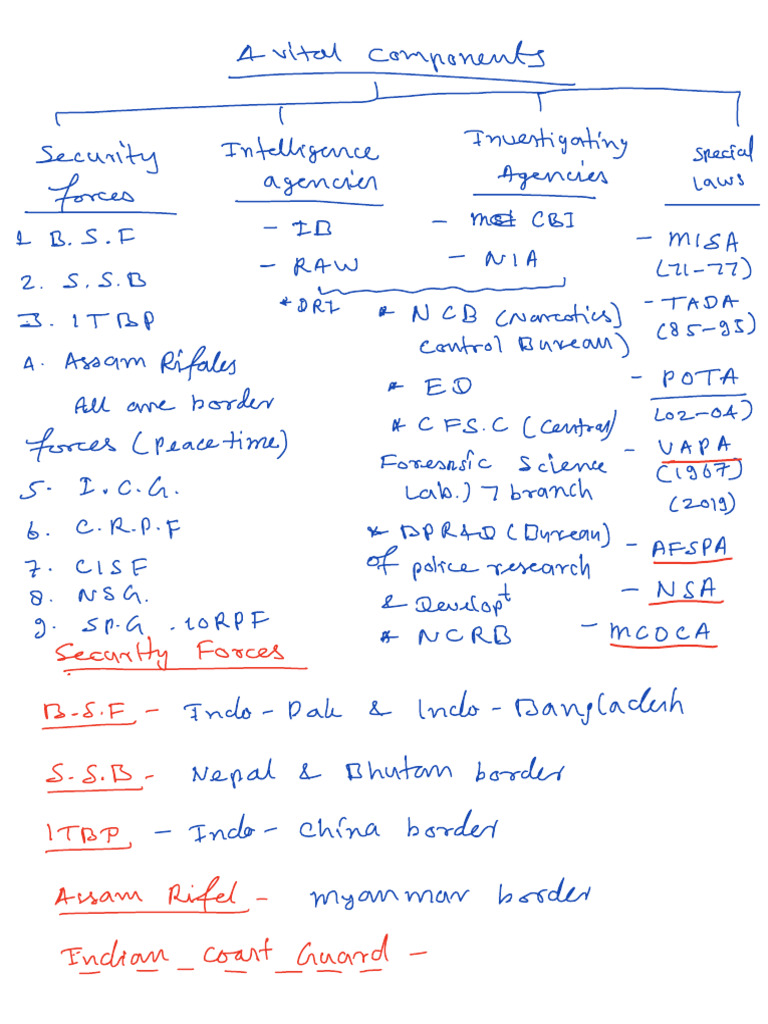 4 vital components
Security
forces
1 B.S.F
2. S.S.B
3. ITBP
4. Assam Rifales
All are border
forces (peace time)
5. I.C.G.
6. C.R.P.F
7. CISF
8. NSG.
9. SP.G . 10 RPF
Intelligence
agencies
- IB
- RAW
* DRI
Investigating
Agencies
- CBI
- NIA
* NCB (Narcotics)
Control Bureau)
* ED
* CFS.C (Central)
Foresnsic Science
Lab.) 7 branch
* BPR&D (Bureau)
of police research
& Developt
* NCRB
Special
Laws
- MISA
(71-77)
- TADA
(85-95)
- POTA
(02-04)
- UAPA
(1967)
(2019)
- AFSPA
- NSA
- MCOCA
Security Forces
B.S.F - Indo - Pak & Indo - Bangladesh
S.S.B - Nepal & Bhutan border
ITBP - Indo - China border
Assam Rifel - myanmar border
Indian Coast Guard -